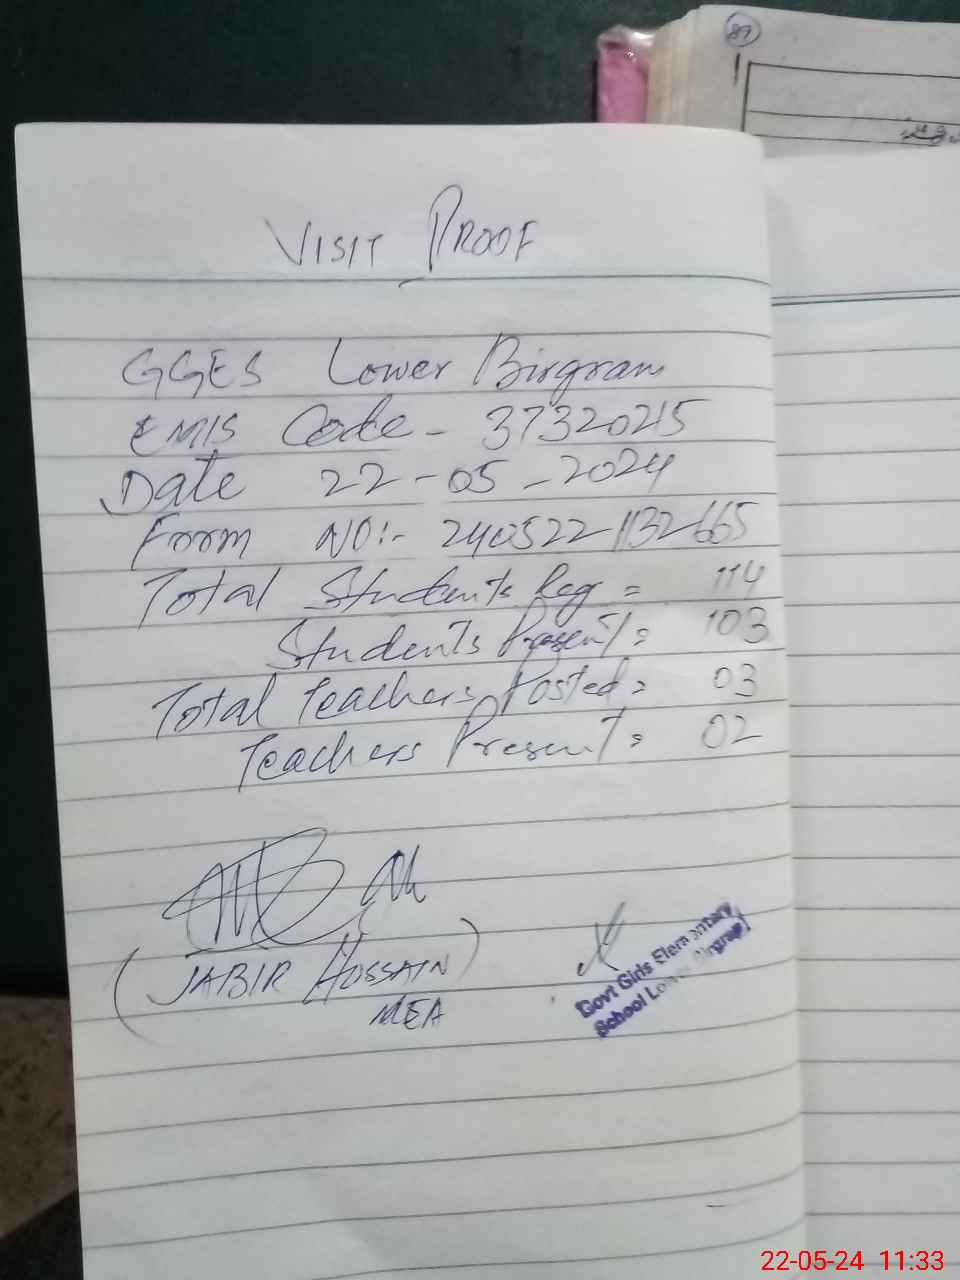 89
VISIT PROOF
GGES Lower Birgram
EMIS Code - 37320215
Date 22-05-2024
Form NO:- 240522-1132665
Total Students Reg = 114
Students Present = 103
Total Teachers Posted = 03
Teachers Present = 02
(JABIR HUSSAIN)
MEA
Govt Girls Elementary
School Lower Birgram
22-05-24 11:33